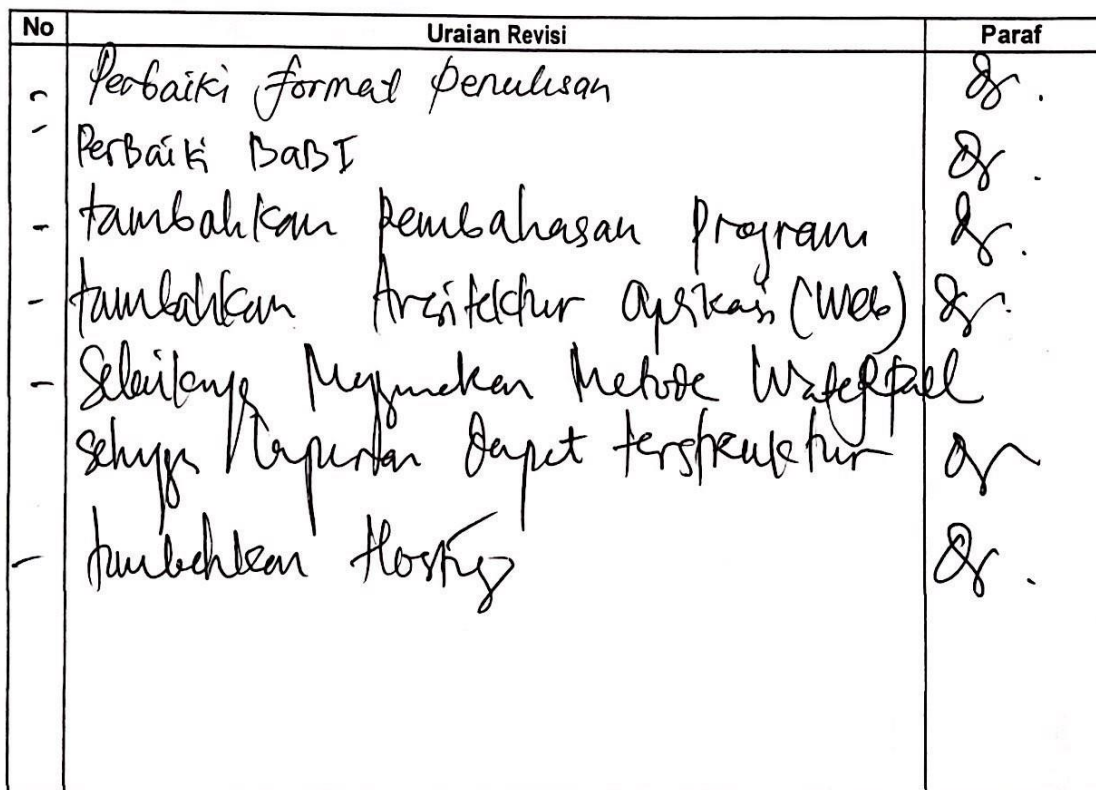 No Uraian Revisi Paraf
- Perbaiki format penulisan
- Perbaiki BaB I
- tambahkan pembahasan Program
- tambahkan Arsitektur aplikasi (Web)
- Sebaiknya Menggunakan Metode Waterfall
sehingga laporan dapat terstruktur
- tambahkan Hosting